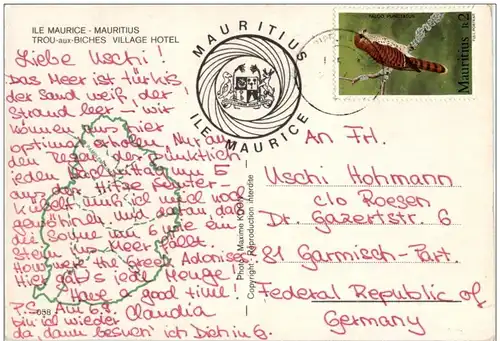 ILE MAURICE - MAURITIUS
TROU-aux-BICHES VILLAGE HOTEL
Liebe Uschi!
Das Meer ist türkis,
der Sand weiß, der
Strand leer - wir
können uns hier
optimal erholen. Nur an
den Regen, der pünktlich
jeden Nachmittag um 5
aus der Hitze runter-
muß ich mich noch
gewöhnen und daran, daß
die Sonne um 6 wie ein
Stein ins Meer fällt.
However, the Greek Adonises
Hier gab's jede Menge!
Have a good time!
Claudia
P.S. Am 6.8.
bin ich wieder
da, dann besuch' ich Dich in G.
088
Photo: Maxime
Copyright. Reproduction interdite
MAURITIUS
ILE MAURICE
FALCO PUNCTATUS
Mauritius R2
An Frl.
Uschi Hohmann
c/o Roesen
Dr. Gazertstr. 6
81 Garmisch-Part.
Federal Republic of
Germany